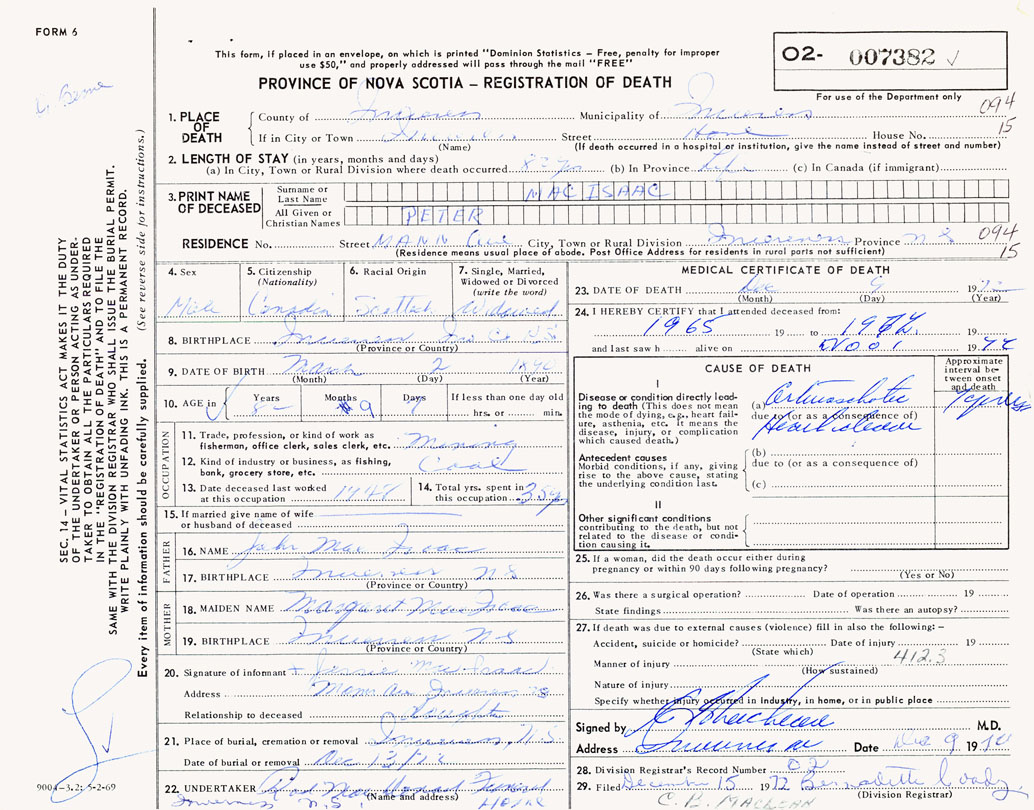 FORM 6
This form, if placed in an envelope, on which is printed "Dominion Statistics – Free, penalty for improper
use $50," and properly addressed will pass through the mail "FREE"
PROVINCE OF NOVA SCOTIA – REGISTRATION OF DEATH
O2- 007382
For use of the Department only
094
15
1. PLACE OF DEATH
County of Inverness Municipality of Inverness
If in City or Town Inverness Street Home House No.
(Name) (If death occurred in a hospital or institution, give the name instead of street and number)
2. LENGTH OF STAY (in years, months and days)
(a) In City, Town or Rural Division where death occurred 82 yrs (b) In Province Life (c) In Canada (if immigrant)
3. PRINT NAME OF DECEASED
Surname or Last Name MAC ISAAC
All Given or Christian Names PETER
RESIDENCE No. Street MANN Ave City, Town or Rural Division Inverness Province N S 094
(Residence means usual place of abode. Post Office Address for residents in rural parts not sufficient) 15
4. Sex Male
5. Citizenship (Nationality) Canadian
6. Racial Origin Scottish
7. Single, Married, Widowed or Divorced (write the word) Widowed
8. BIRTHPLACE Inverness Inv Co N S
(Province or Country)
9. DATE OF BIRTH March 2 1890
(Month) (Day) (Year)
10. AGE in Years 82 Months 9 Days 7 If less than one day old
hrs. or min.
OCCUPATION
11. Trade, profession, or kind of work as
fisherman, office clerk, sales clerk, etc. Mining
12. Kind of industry or business, as fishing,
bank, grocery store, etc. Coal
13. Date deceased last worked
at this occupation
14. Total yrs. spent in
this occupation 35 yrs
15. If married give name of wife
or husband of deceased
FATHER
16. NAME John Mac Isaac
17. BIRTHPLACE Inverness N S
(Province or Country)
MOTHER
18. MAIDEN NAME Margaret Mac Isaac
19. BIRTHPLACE Inverness N S
(Province or Country)
20. Signature of informant Jessie Mac Isaac
Address Mann Ave Inverness NS
Relationship to deceased daughter
21. Place of burial, cremation or removal Inverness, N.S.
Date of burial or removal Dec 13/72
22. UNDERTAKER Funeral Home
(Name and address)
Inverness N.S.
MEDICAL CERTIFICATE OF DEATH
23. DATE OF DEATH Dec 9 1972
(Month) (Day) (Year)
24. I HEREBY CERTIFY that I attended deceased from:
1965 19 to 1972 19
and last saw h alive on Nov 1 1972
CAUSE OF DEATH
Approximate interval between onset and death
I
Disease or condition directly lead-
ing to death (This does not mean
the mode of dying, e.g., heart fail-
ure, asthenia, etc. It means the
disease, injury, or complication
which caused death.)
(a)
due to (or as a consequence of)
Heart disease
Antecedent causes
Morbid conditions, if any, giving
rise to the above cause, stating
the underlying condition last.
(b)
due to (or as a consequence of)
(c)
II
Other significant conditions
contributing to the death, but not
related to the disease or condi-
tion causing it.
25. If a woman, did the death occur either during
pregnancy or within 90 days following pregnancy?
(Yes or No)
26. Was there a surgical operation? Date of operation 19
State findings Was there an autopsy?
27. If death was due to external causes (violence) fill in also the following: –
Accident, suicide or homicide? Date of injury 19
(State which) 412.3
Manner of injury
(How sustained)
Nature of injury
Specify whether injury occurred in industry, in home, or in public place
Signed by M.D.
Address Inverness Date Dec 9 19
28. Division Registrar's Record Number 02
29. Filed December 15 1972 Bernadette
(Division Registrar)
C. B. MACLEAN
SEC. 14 – VITAL STATISTICS ACT MAKES IT THE DUTY
OF THE UNDERTAKER OR PERSON ACTING AS UNDER-
TAKER TO OBTAIN ALL THE PARTICULARS REQUIRED
IN THE "REGISTRATION OF DEATH" AND TO FILE THE
SAME WITH THE DIVISION REGISTRAR WHO SHALL ISSUE THE BURIAL PERMIT.
WRITE PLAINLY WITH UNFADING INK. THIS IS A PERMANENT RECORD.
Every item of information should be carefully supplied. (See reverse side for instructions.)
9004-3.2: 5-2-69